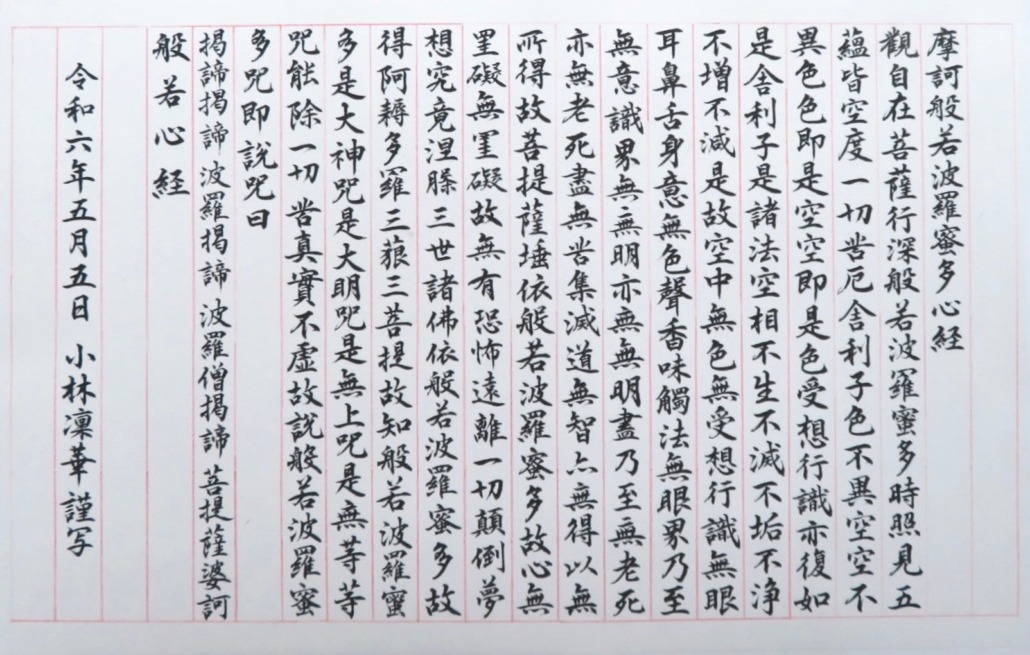 摩訶般若波羅蜜多心経
觀自在菩薩行深般若波羅蜜多時照見五
蘊皆空度一切苦厄舎利子色不異空空不
異色色即是空空即是色受想行識亦復如
是舎利子是諸法空相不生不滅不垢不浄
不增不減是故空中無色無受想行識無眼
耳鼻舌身意無色聲香味觸法無眼界乃至
無意識界無無明亦無無明盡乃至無老死
亦無老死盡無苦集滅道無智亦無得以無
所得故菩提薩埵依般若波羅蜜多故心無
罣礙無罣礙故無有恐怖遠離一切顛倒夢
想究竟涅槃三世諸佛依般若波羅蜜多故
得阿耨多羅三藐三菩提故知般若波羅蜜
多是大神咒是大明咒是無上咒是無等等
咒能除一切苦真實不虚故説般若波羅蜜
多咒即説咒曰
揭諦揭諦 波羅揭諦 波羅僧揭諦 菩提薩婆訶
般若心経
令和六年五月五日 小林凜華謹写